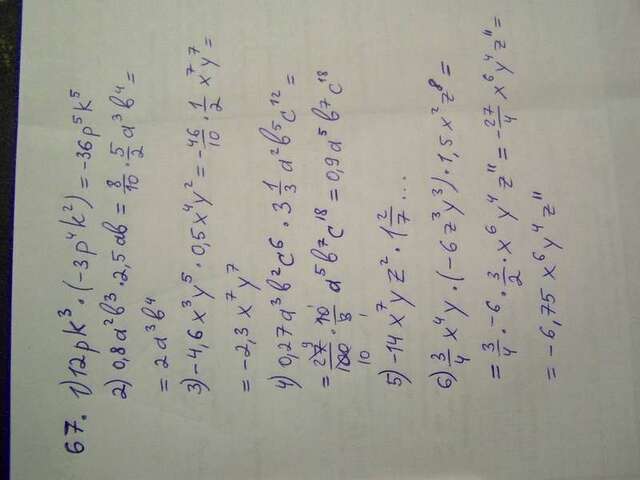 67. 1) 12pk³·(-3p⁴k²) = -36p⁵k⁵
2) 0,8a²b³·2,5ab = 8/10 · 5/2 a³b⁴ =
= 2a³b⁴
3) -4,6x³y⁵·0,5x⁴y² = -46/10 · 1/2 x⁷y⁷ =
= -2,3x⁷y⁷
4) 0,27a³b²c⁶ · 3 1/3 a²b⁵c¹² =
= 27/100 · 10/3 a⁵b⁷c¹⁸ = 0,9a⁵b⁷c¹⁸
5) -14x⁷yz² · 1 2/7 ...
6) 3/4 x⁴y·(-6z³y³)·1,5x²z⁸ =
= 3/4 · -6 · 3/2 · x⁶y⁴z¹¹ = -27/4 x⁶y⁴z¹¹ =
= -6,75x⁶y⁴z¹¹